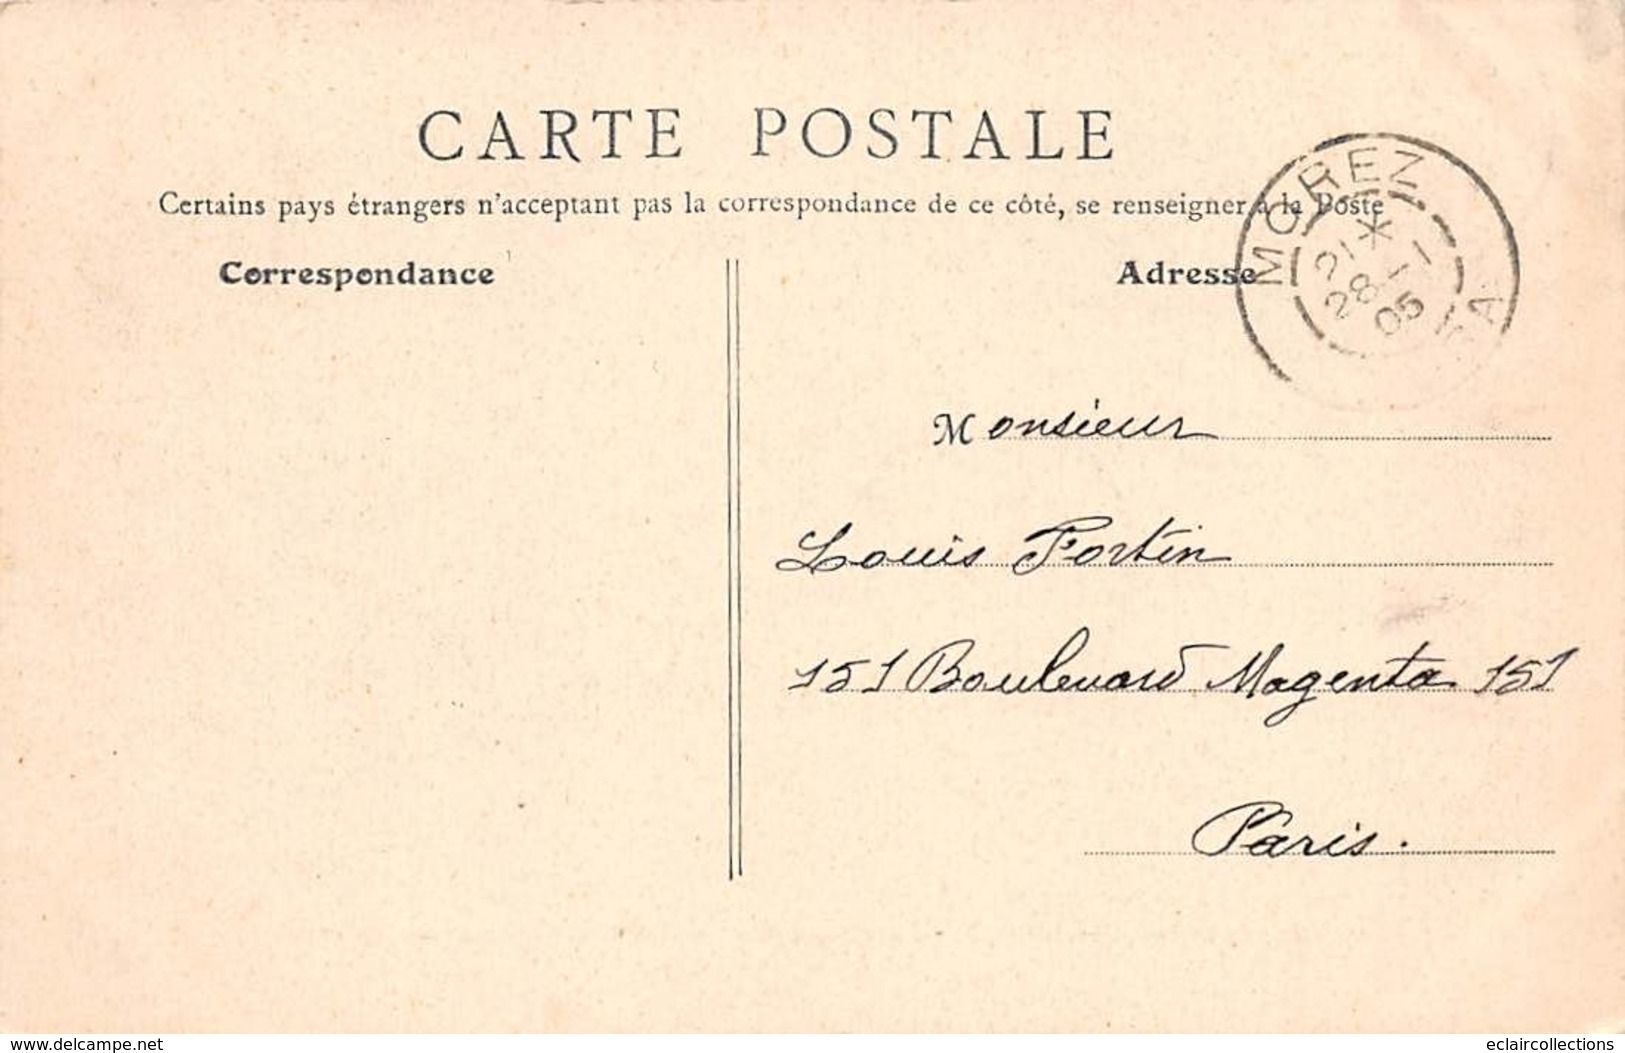 CARTE POSTALE
Certains pays étrangers n'acceptant pas la correspondance de ce côté, se renseigner à la Poste
Correspondance
Adresse
MOREZ
21 *
28 - 1
05
Monsieur
Louis Fortin
151 Boulevard Magenta 151
Paris.
www.delcampe.net
eclaircollections